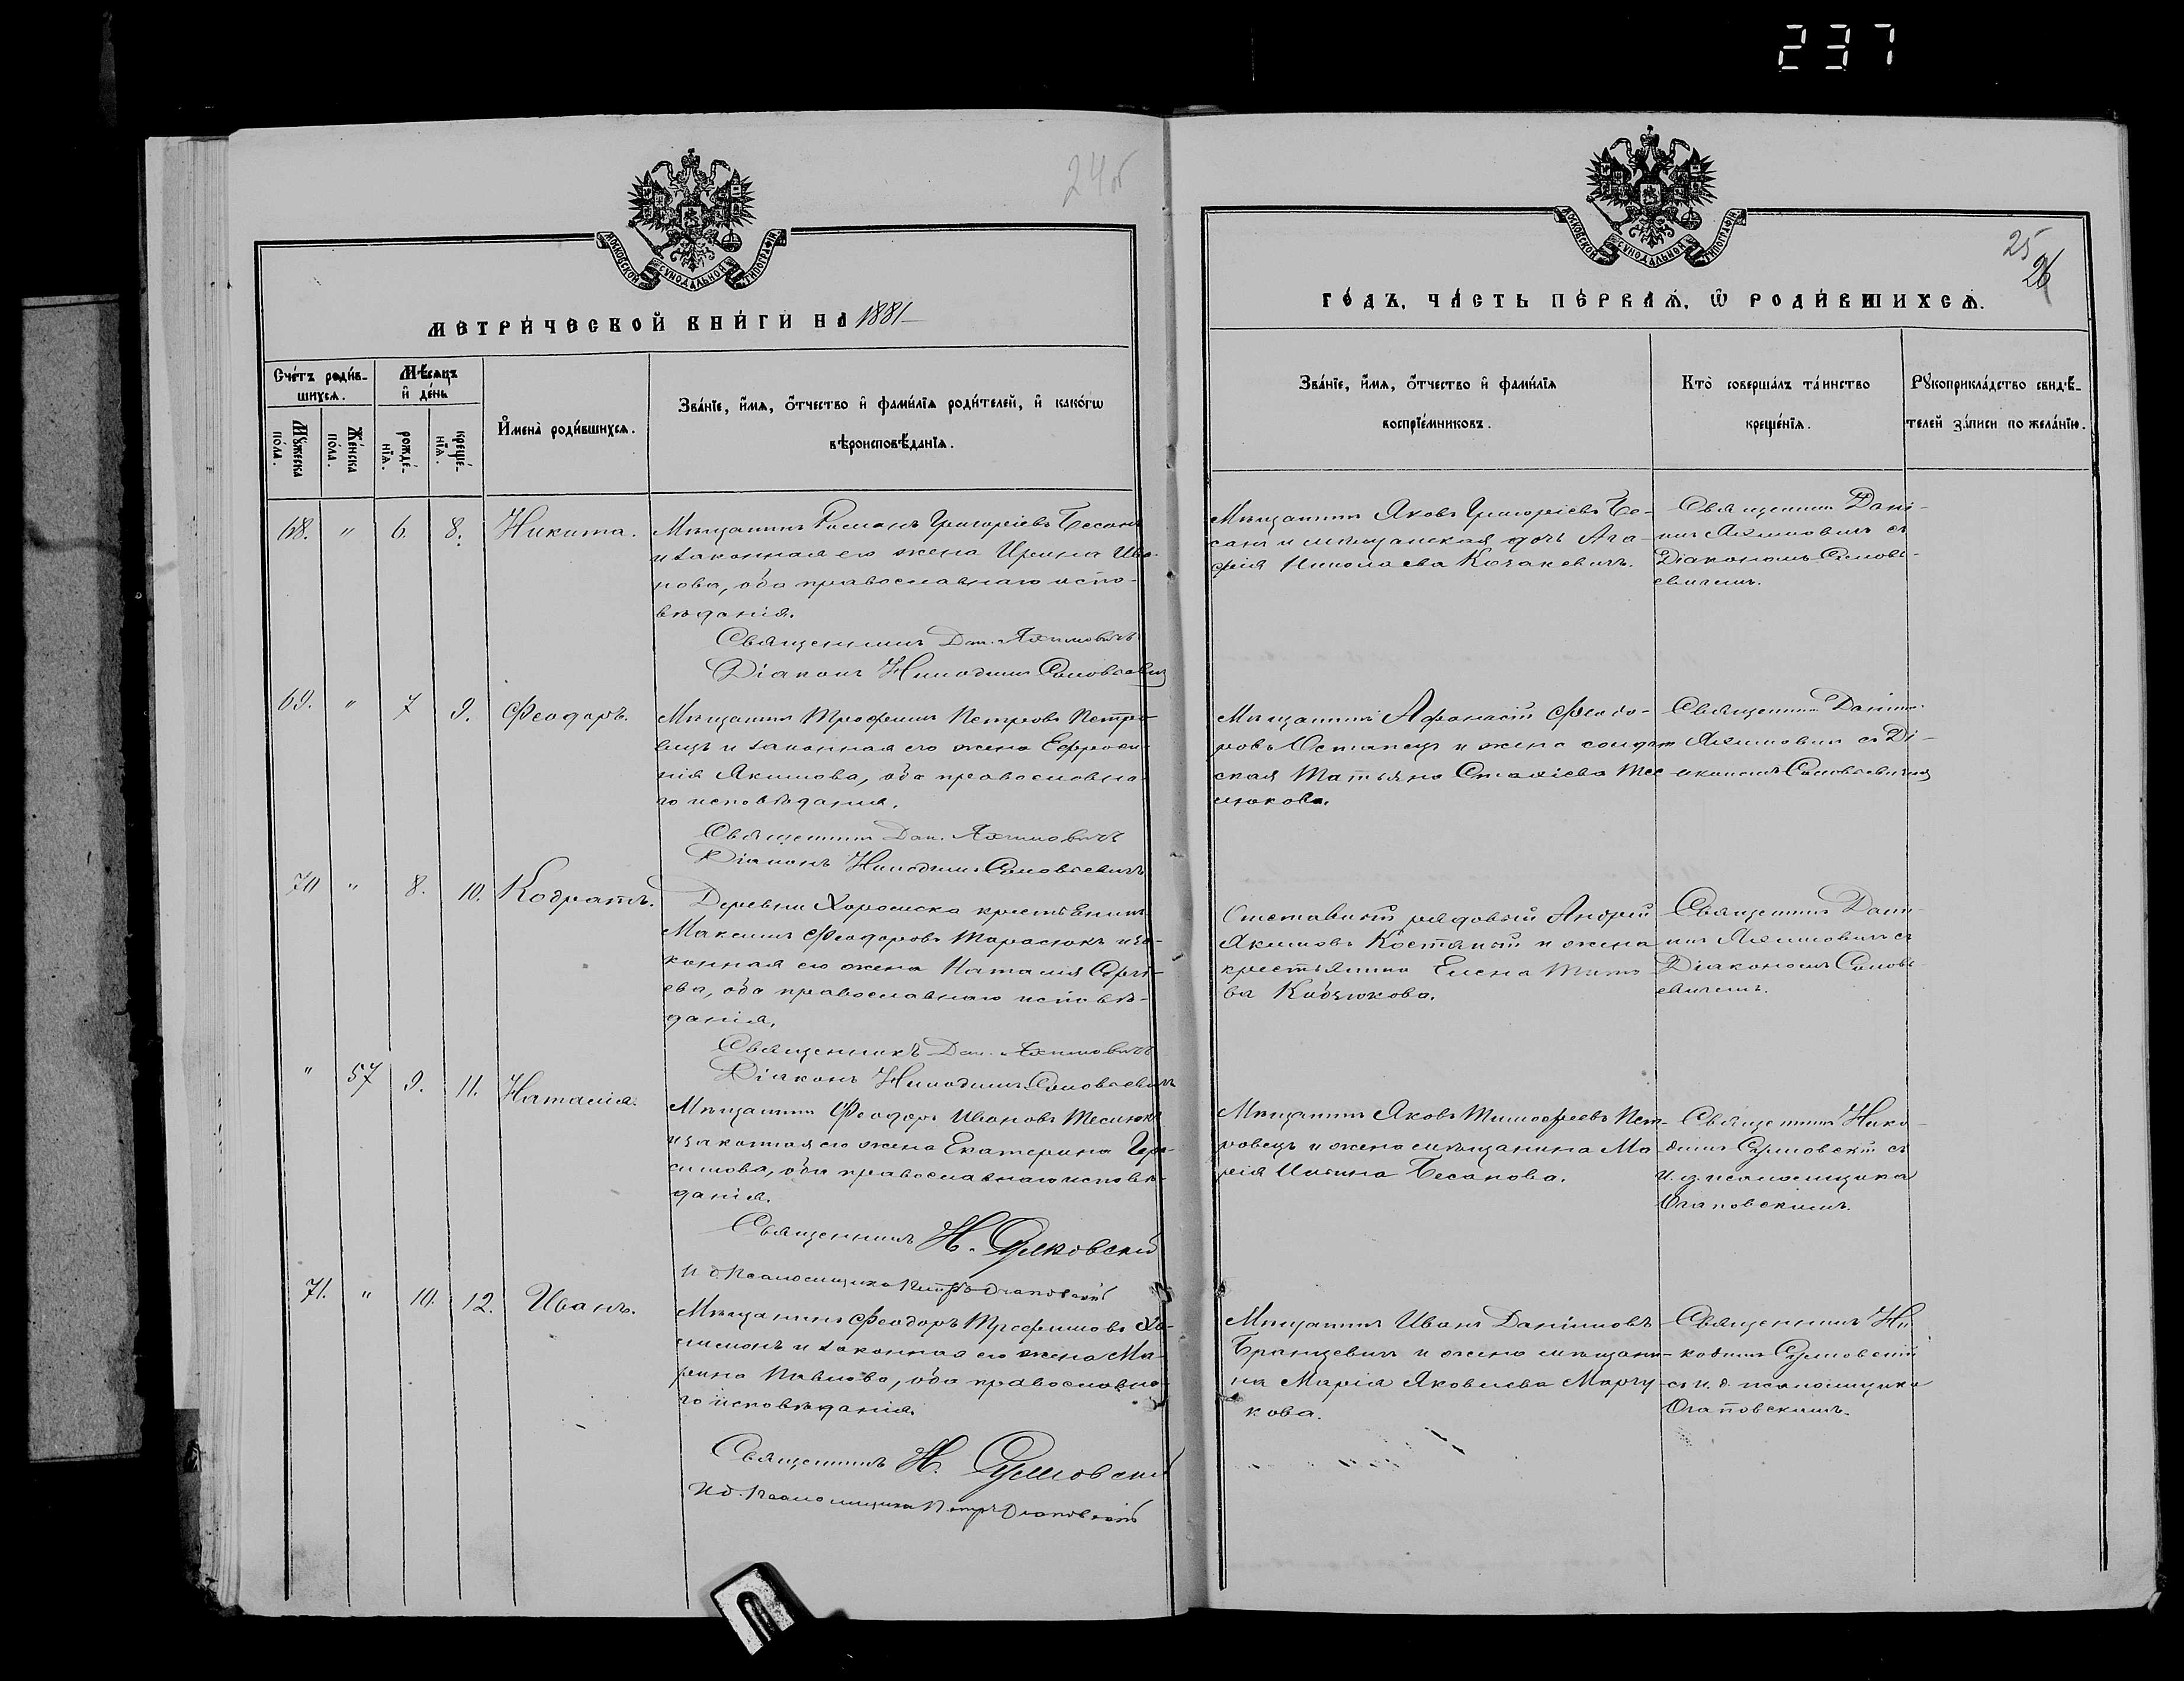 237
24об
МОСКОВСКОЙ СѴНОДАЛЬНОЙ ТИПОГРАФІИ
МЕТРИЧЕСКОЙ КНИГИ НА 1881
Счетъ родив-
шихся.
Мꙋжеска
пола.
Женска
пола.
Мѣсяцъ
и день
рожде-
нія.
креще-
нія.
Имена родившихся.
Званіе, имя, отчество и фамилія родителей, и какогѡ
вѣроисповѣданія.
68. " 6. 8. Никита.
Мѣщанинъ Романъ Григоріевъ Бесанъ
и законная его жена Ирина Ива-
нова, оба православнаго испо-
вѣданія.
Священникъ Дан. Яхимовичъ
Діаконъ Никодимъ Соловьевичъ
69. " 7 9. Феодоръ.
Мѣщанинъ Трофимъ Петровъ Петро-
вецъ и законная его жена Ефроси-
нія Якимова, оба православна-
го исповѣданія.
Священникъ Дан. Яхимовичъ
Діаконъ Никодимъ Соловьевичъ
70 " 8. 10. Кодратъ.
Деревни Хоромска крестьянинъ
Максимъ Феодоровъ Тарасюкъ и за-
конная его жена Наталія Сергі-
ева, оба православнаго исповѣ-
данія.
Священникъ Дан. Яхимовичъ
Діаконъ Никодимъ Соловьевичъ
" 57 9. 11. Наталія.
Мѣщанинъ Феодоръ Ивановъ Теслюкъ
и законная его жена Екатерина Гера-
симова, оба православнаго исповѣ-
данія.
Священникъ Н.
И. д. Псаломщика Петръ
71. " 10. 12. Иванъ.
Мѣщанинъ Феодоръ Трофимовъ
и законная его жена Ма-
рина Павлова, оба православна-
го исповѣданія.
Священникъ Н.
И. д. Псаломщика Петръ
25
26
МОСКОВСКОЙ СѴНОДАЛЬНОЙ ТИПОГРАФІИ
ГОДЪ, ЧАСТЬ ПЕРВАЯ, Ѡ РОДИВШИХСЯ.
Званіе, имя, отчество и фамилія
воспріемниковъ.
Кто совершалъ таинство
крещенія.
Рꙋкоприкладство свидѣ-
телей записи по желанію.
Мѣщанинъ Яковъ Григоріевъ Бе-
санъ и мѣщанская дочь Ага-
фія Николаева Козакевичъ.
Священникъ Дані-
илъ Яхимовичъ съ
Діакономъ Соловь-
евичемъ.
Мѣщанинъ Афанасій Феодо-
ровъ Остапецъ и жена солдат
ская Татьяна Тес
люкова.
Священникъ Даніилъ
Яхимовичъ съ Ді-
акономъ Соловьевичемъ
Отставной рядовой Андрей
Якимовъ и жена
крестьянина Елена Тито-
ва
Священникъ Дані-
илъ Яхимовичъ съ
Діакономъ Соловь-
евичемъ.
Мѣщанинъ Яковъ Тимофеевъ Пет-
ровецъ и жена мѣщанина Ма-
рія Ильина Бесанова.
Священникъ Нико-
димъ съ
и. д. псаломщика
Мѣщанинъ Иванъ Даніиловъ
Бранцевичъ и жена мѣщани-
на Марія Яковлева Марчу-
кова.
Священникъ Ни-
кодимъ
съ и. д. псаломщика